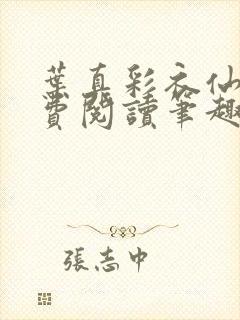 葉真彩衣仙
費閱讀筆趣
張志中